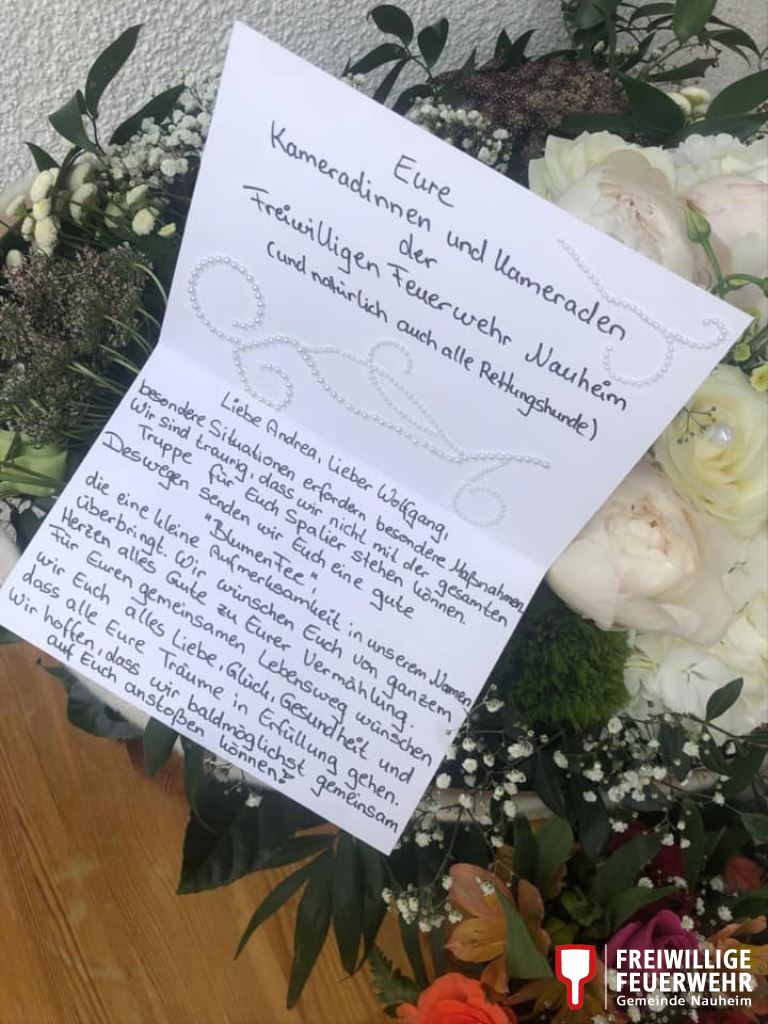 Eure
Kameradinnen und Kameraden
der
Freiwilligen Feuerwehr Nauheim
(und natürlich auch alle Rettungshunde)
Liebe Andrea, lieber Wolfgang,
besondere Situationen erfordern besondere Maßnahmen.
Wir sind traurig, dass wir nicht mit der gesamten
Truppe für Euch Spalier stehen können.
Deswegen senden wir Euch eine gute
"Blumen Fee",
die eine kleine Aufmerksamkeit in unserem Namen
überbringt. Wir wünschen Euch von ganzem
Herzen alles Gute zu Eurer Vermählung.
Für Euren gemeinsamen Lebensweg wünschen
wir Euch alles Liebe, Glück, Gesundheit und
dass alle Eure Träume in Erfüllung gehen.
Wir hoffen, dass wir baldmöglichst gemeinsam
auf Euch anstoßen können!
FREIWILLIGE
FEUERWEHR
Gemeinde Nauheim